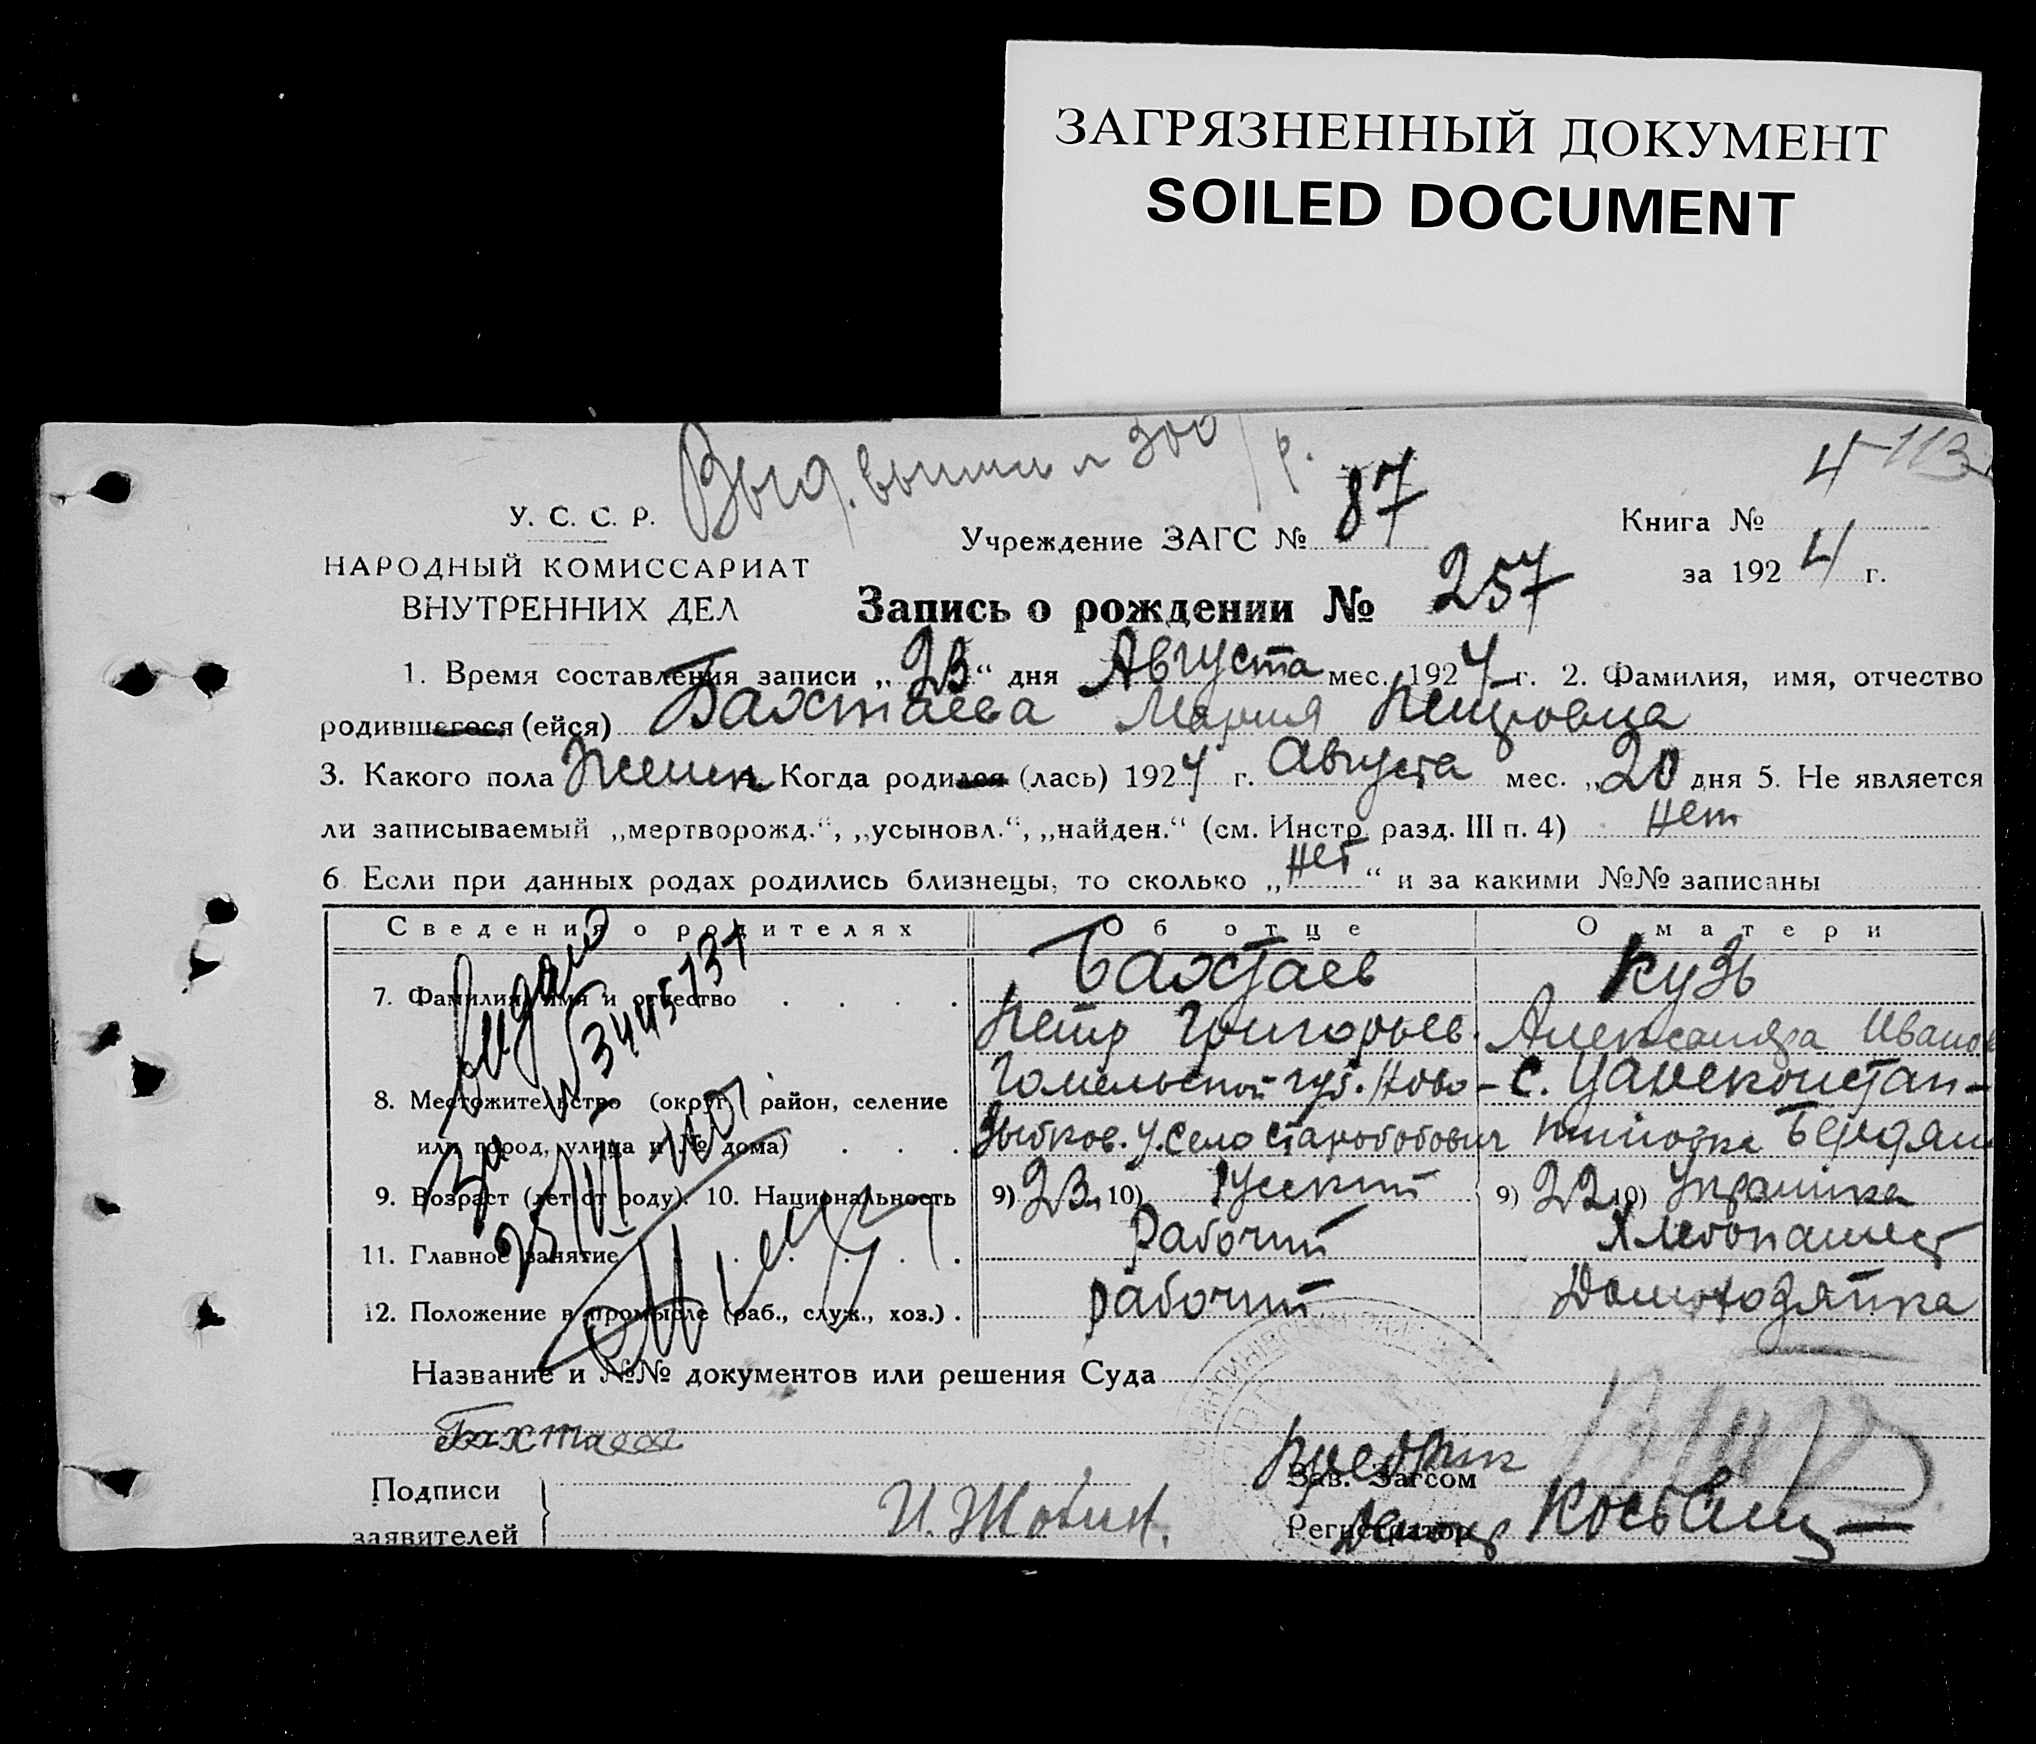 ЗАГРЯЗНЕННЫЙ ДОКУМЕНТ
SOILED DOCUMENT
4 113
У. С. С. Р.
НАРОДНЫЙ КОМИССАРИАТ
ВНУТРЕННИХ ДЕЛ
Учреждение ЗАГС № 87
Книга №
за 1924 г.
Запись о рождении № 257
1. Время составления записи „23“ дня Августа мес. 1924 г. 2. Фамилия, имя, отчество
родившегося (ейся) Бахтаева Мария Петровна
3. Какого пола Женск 4. Когда родился (лась) 1924 г. Августа мес. „20 дня 5. Не является
ли записываемый „мертворожд.“, „усыновл.“, „найден.“ (см. Инстр. разд. III п. 4) нет
6 Если при данных родах родились близнецы, то сколько „нет“ и за какими №№ записаны
Сведения о родителях Об отце О матери
7. Фамилия, имя и отчество Бахтаев Кузь
Петр Григорьев. Александра Иванов
8. Местожительство (округ, район, селение Гомельской губ. Ново- с. Цареконстан-
или город, улица и № дома) Зыбков. у. село Старобобович Бердян
9. Возраст (лет от роду). 10. Национальность 9) 23 10) Русский 9) 22 10) Украинка
11. Главное занятие Рабочий Хлебопашест
12. Положение в промысле (раб., служ., хоз.) рабочий Домохозяйка
Выдано
3445737
Название и №№ документов или решения Суда
Бахтаева
Подписи
заявителей
И. Жовин.
Зав. Загсом
Регистратор